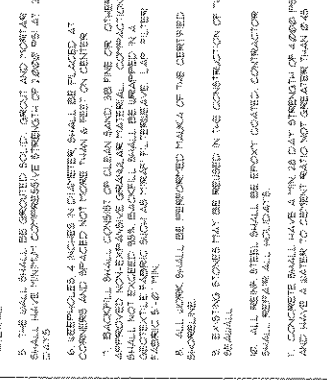 5. THE WALL SHALL BE GROUTED SOLID. GROUT AND MORTAR
SHALL HAVE MINIMUM COMPRESSIVE STRENGTH OF 2,000 PSI AT
DAYS
6. WEEPHOLES, 4 INCHES IN DIAMETER, SHALL BE PLACED AT
CORNERS AND SPACED NOT MORE THAN 6 FEET ON CENTER
7. BACKFILL SHALL CONSIST OF CLEAN SAND, 3/8 FINE OR OTHER
APPROVED NON-EXPANSIVE GRANULAR MATERIAL. COMPACTION
SHALL NOT EXCEED 95%. BACKFILL SHALL BE WRAPPED IN A
GEOTEXTILE FABRIC SUCH AS MIRAFI FILTERWEAVE. LAP FILTER
FABRIC MIN.
8. ALL WORK SHALL BE PERFORMED MAUKA OF THE CERTIFIED
SHORELINE.
9. EXISTING STONES MAY BE REUSED IN THE CONSTRUCTION OF
SEAWALL
10. ALL REINF. STEEL SHALL BE EPOXY COATED. CONTRACTOR
SHALL REPAIR ALL HOLIDAYS.
CONCRETE SHALL HAVE A MIN. 28 DAY STRENGTH OF 4,000 PSI
AND HAVE A WATER TO CEMENT RATIO NOT GREATER THAN 0.45